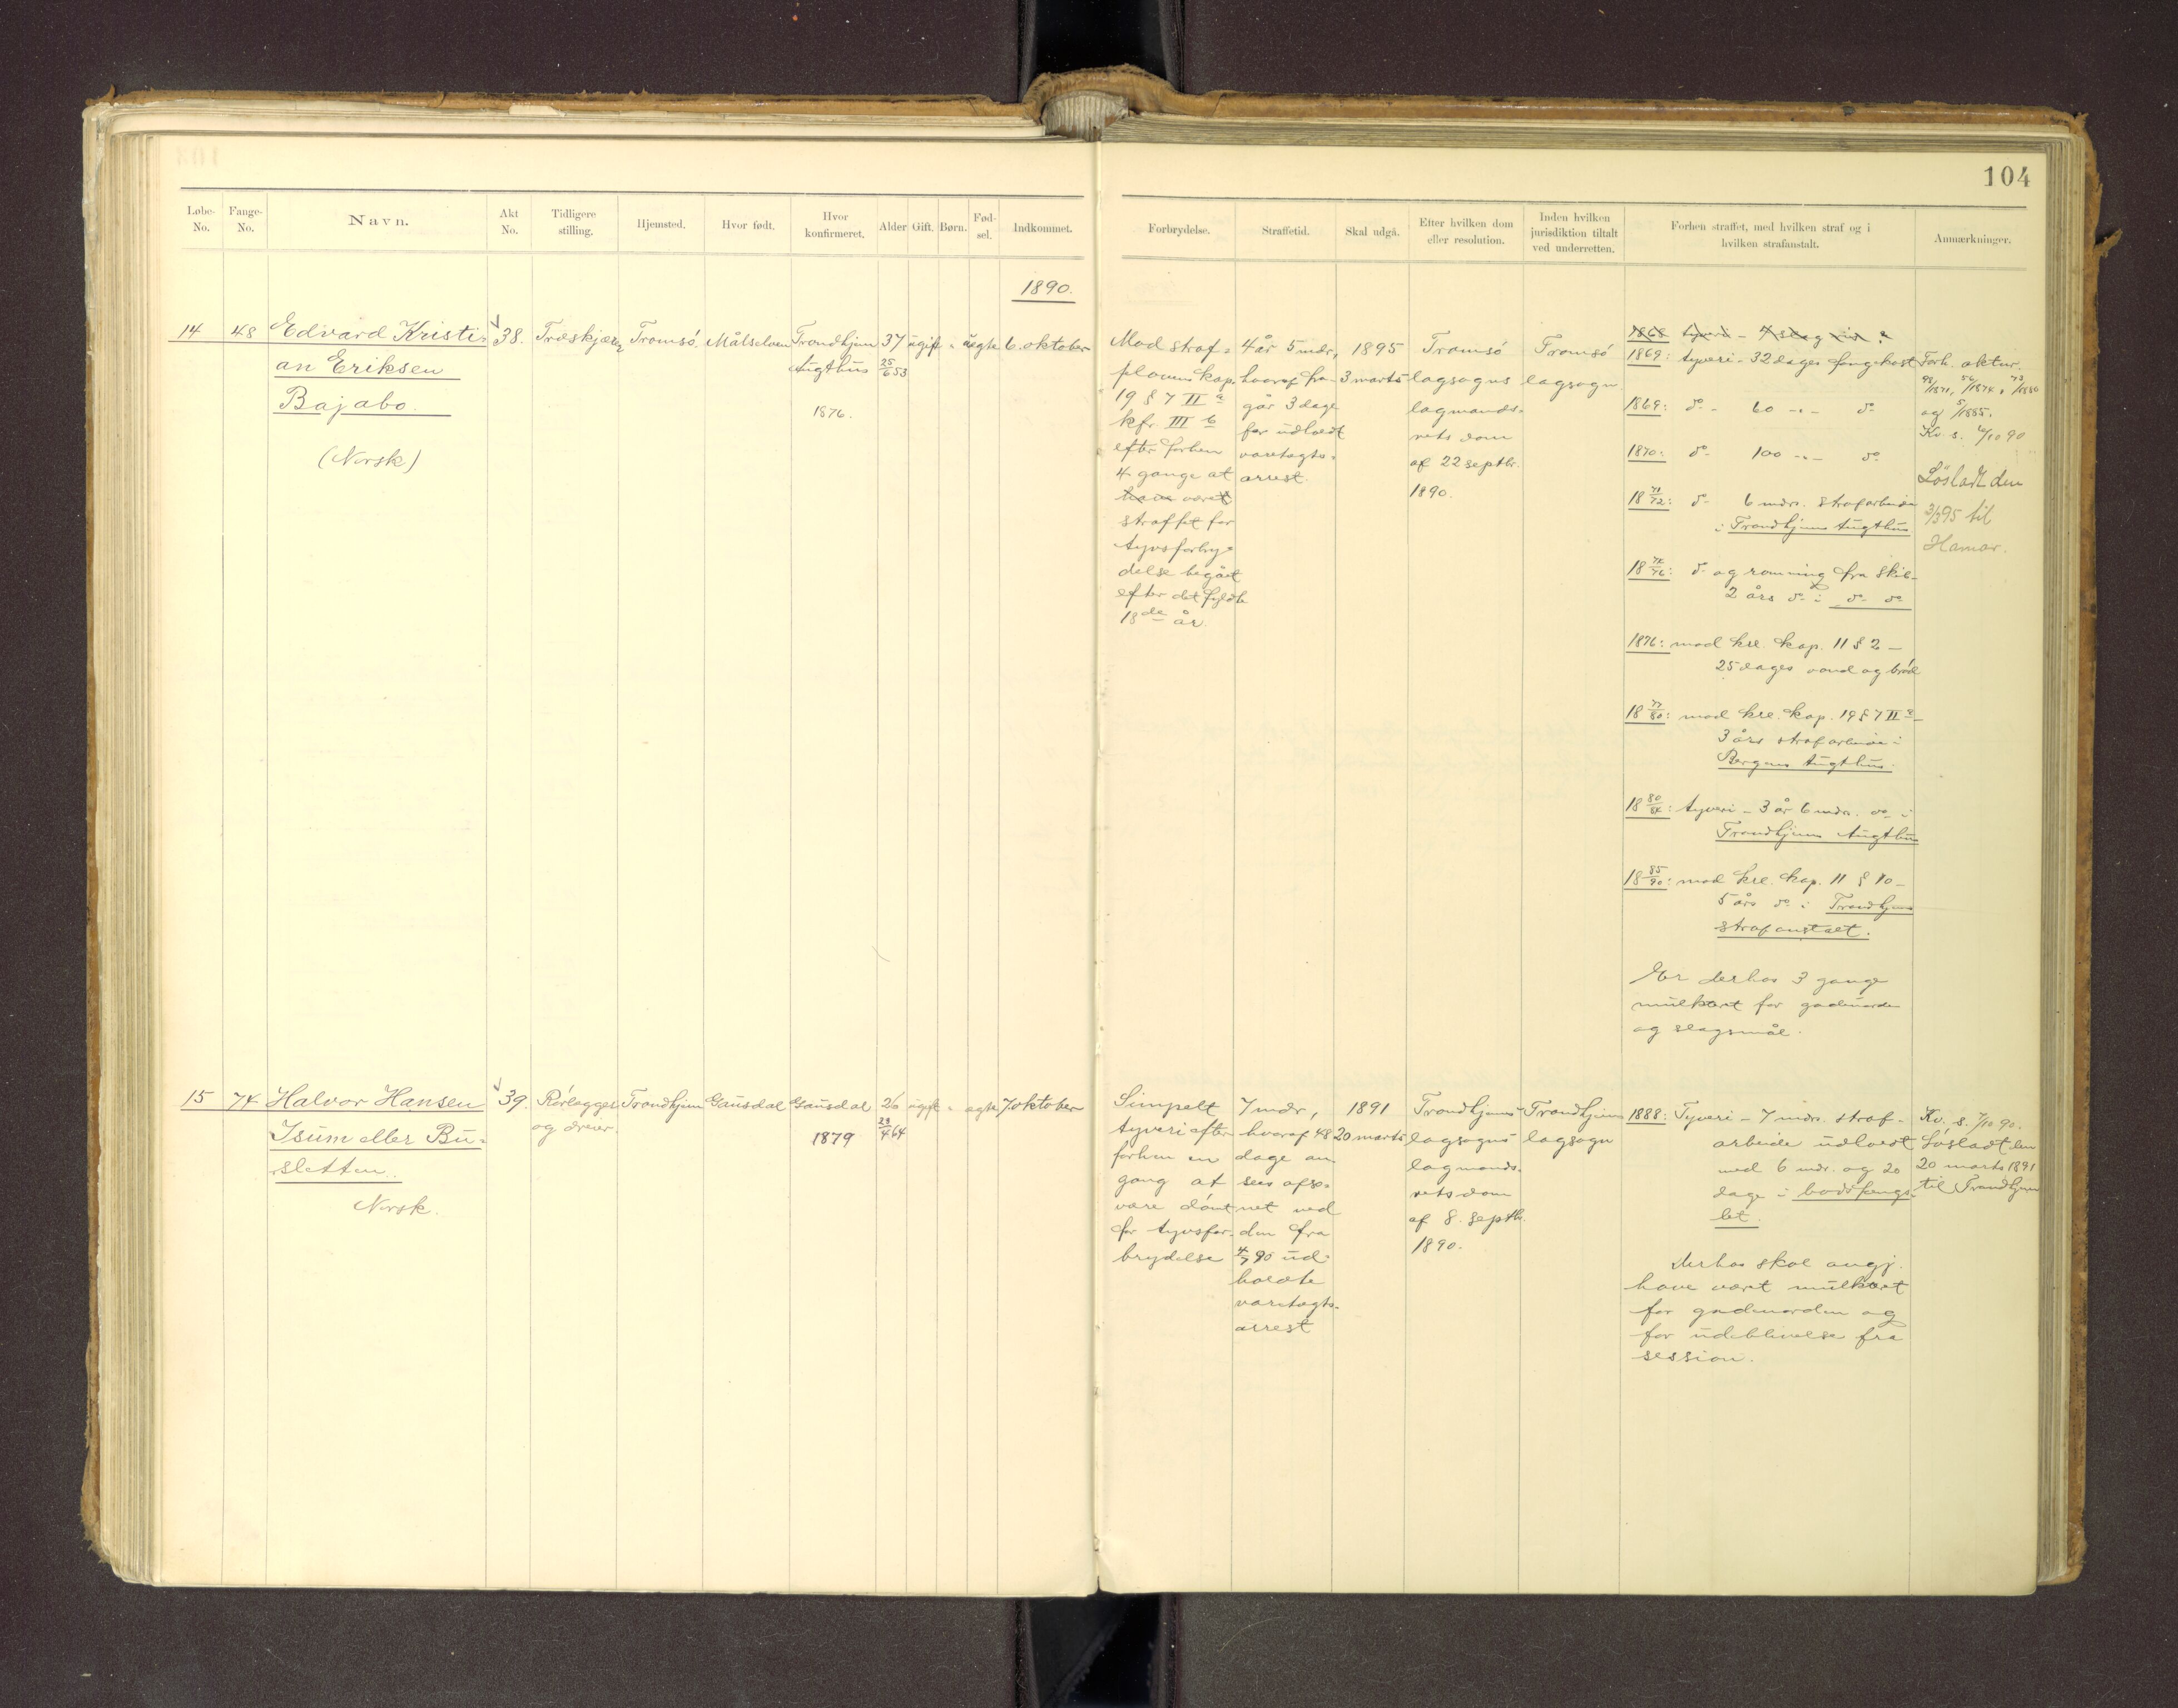 104
Løbe-No.
Fange-No.
Navn.
Akt No.
Tidligere stilling.
Hjemsted.
Hvor født.
Hvor konfirmeret.
Alder
Gift.
Børn.
Fød-sel.
Indkommet.
Forbrydelse.
Straffetid.
Skal udgå.
Efter hvilken dom eller resolution.
Inden hvilken jurisdiktion tiltalt ved underretten.
Forhen straffet, med hvilken straf og i hvilken strafanstalt.
Anmærkninger.
1890.
14
48
Edvard Kristi-
an Eriksen
Bajabo.
(Norsk)
38.
Træskjærer
Tromsö.
Målselven
Trondhjem
tugthus
1876.
37
25/6 53
ugift
"
uegte
6. oktober
Mod straf-
plovens kap.
19 § 7 II a
kfr III b
efter forhen
4 gange at
have været
straffet for
tyvsforbry-
delse begået
efter det fyldte
18de år.
4 år 5 mdr,
hvoraf fra-
går 3 dage
for udholdt
varetægts-
arrest.
1895
3 marts
Tromsö
lagsogns
lagmands-
rets dom
af 22 septbr.
1890.
Tromsö
lagsogn
1868 tyveri -
1869: tyveri - 32 dages fangekost
1869: do - 60 -"- do
1870: do - 100 -"- do
18 71/72: do - 6 mdr. strafarbeide
i Trondhjems tugthus
18 74/76: do og rømning fra skib -
2 års do i do do
1876: mod krl. kap. 11 § 2 -
25 dages vand og bröd
18 77/80: mod krl. kap. 19 § 7 II a -
3 års strafarbeide i
Bergens tugthus.
18 80/84: tyveri - 3 år 6 mdr. do i
Trondhjems tugthus
18 85/90: mod krl. kap. 11 § 10 -
5 års do i Trondhjems
strafanstalt.
Er derhos 3 gange
mulkteret for gadeuorden
og slagsmål.
Forh. aktnr.
98/1871, 56/1874, 73/1880
og 5/1885.
Kv. s. 6/10 90
Lösladt den
3/3 95 til
Hamar.
15
74
Halvor Hansen
Isum eller Bu-
sletten.
Norsk.
39.
Rörlægger
og dreier.
Trondhjem
Gausdal
Gausdal
1879
26
23/4 64
ugift
"
egte
7 oktober
Simpelt
tyveri efter
forhen en
gang at
være dömt
for tyvsfor-
brydelse
7 mdr,
hvoraf 48
dage an-
sees afso-
net ved
den fra
4/7 90 ud-
holdte
varetægts-
arrest
1891
20 marts
Trondhjems
lagsogns
lagmands-
rets dom
af 8. septbr.
1890.
Trondhjems
lagsogn
1888: Tyveri - 7 mdr. straf-
arbeide udholdt
med 6 mdr. og 20
dage i bodsfængs-
let.
Derhos skal angj.
have været mulkteret
for gadeuorden og
for udeblivelse fra
session.
Kv. s. 7/10 90.
Lösladt den
20 marts 1891
til Trondhjem